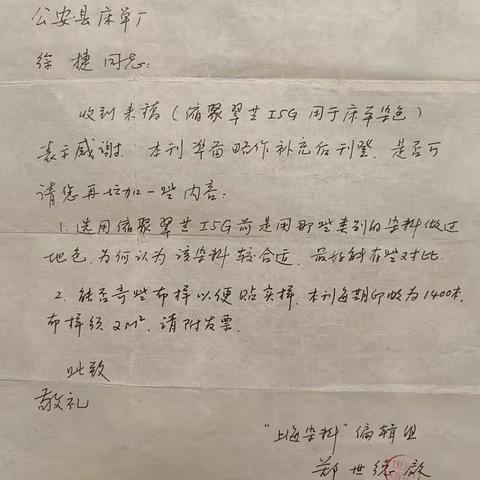 公安县床单厂
徐捷同志:
收到来稿(缩聚翠兰I5G用于床单染色)
表示感谢. 本刊准备略作补充后刊登, 是否可
请您再增加一些内容:
1. 选用缩聚翠兰I5G前是用那些类别的染料做过
地色, 为何认为该染料较合适, 最好能有些对比.
2. 能否寄些布样以便贴实样, 本刊每期印数为1400本,
布样须2M², 请附发票.
此致
敬礼
"上海染料"编辑组
郑世德 启